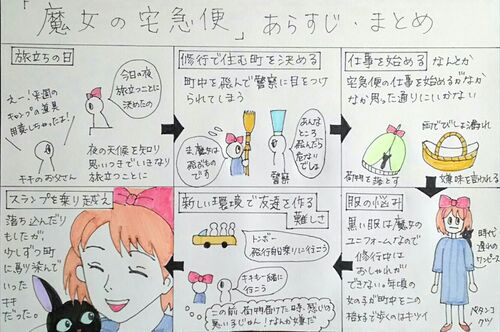 「魔女の宅急便」あらすじ・まとめ
旅立ちの日
今日の夜
旅立つことに
決めたの
えー!来週の
キャンプの道具
用意しちゃったよ!
キキのお父さん
夜の天候を知り
思いつきでいきなり
旅立つことに
修行で住む町を決める
町中を飛んで警察に目をつけ
られてしまう
あんな
ところ
飛んだら
危ない
でしょ
魔女は
飛ぶもの
です
警察
仕事を始める
なんとか
宅急便の仕事を始めるがなか
なか思った通りにいかない
雨でびしょ濡れ
荷物を落とす
嫌味を言われる
服の悩み
黒い服は魔女の
ユニフォームなので
修行中は
おしゃれが
できない。年頃の
女の子が町中でこの
格好で歩くのはキツイ
時代
遅れの
ワンピース
ペタンコ
グツ
新しい環境で友達を作る
難しさ
トンボー
飛行船乗りに行こう
キキも一緒に
行こう
この前荷物届けた時、感じの
悪い子じゃん!なんか嫌だ
スランプを乗り越え
落ち込んだり
もしたが
少しずつ町
に馴染んで
いった
キキ
だった。